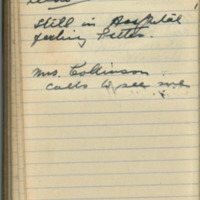 Still in Hospital
feeling better.
Mrs. Collinson
calls to see me